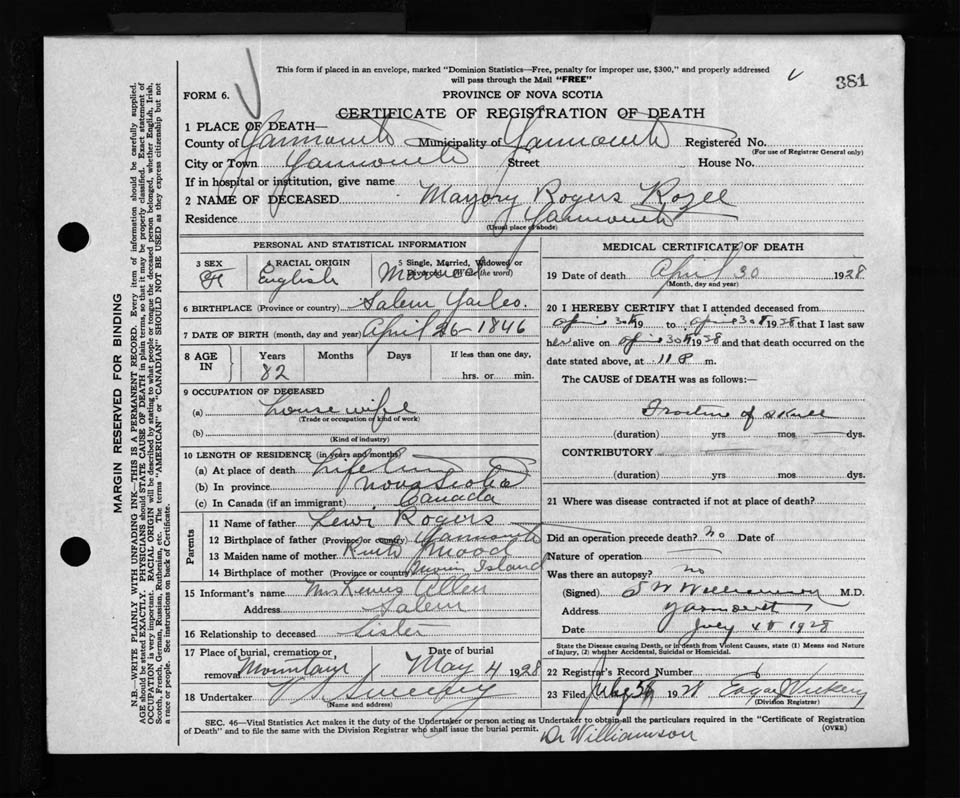 This form if placed in an envelope, marked "Dominion Statistics—Free, penalty for improper use, $300," and properly addressed
will pass through the Mail "FREE"
381
FORM 6.
PROVINCE OF NOVA SCOTIA
CERTIFICATE OF REGISTRATION OF DEATH
1 PLACE OF DEATH—
County of Yarmouth Municipality of Yarmouth Registered No.
(For use of Registrar General only)
City or Town Yarmouth Street House No.
If in hospital or institution, give name
2 NAME OF DECEASED Marjory Rogers Rozee
Residence Yarmouth
(Usual place of abode)
PERSONAL AND STATISTICAL INFORMATION
3 SEX 4 RACIAL ORIGIN 5 Single, Married, Widowed or
Divorced (Write the word)
F English Married
6 BIRTHPLACE (Province or country) Salem Yar Co.
7 DATE OF BIRTH (month, day and year) April 26-1846
8 AGE IN Years Months Days If less than one day,
82 hrs. or min.
9 OCCUPATION OF DECEASED
(a) house wife
(Trade or occupation or kind of work)
(b)
(Kind of industry)
10 LENGTH OF RESIDENCE (in years and months)
(a) At place of death Life time
(b) In province Nova Scotia
(c) In Canada (if an immigrant) Canada
Parents
11 Name of father Levi Rogers
12 Birthplace of father (Province or country) Yarmouth
13 Maiden name of mother Ruth Mood
14 Birthplace of mother (Province or country) Island
15 Informant's name Mrs Allen
Address Salem
16 Relationship to deceased Sister
17 Place of burial, cremation or removal Date of burial
Mountain May 4 1928
18 Undertaker V. S. Sweeny
(Name and address)
MEDICAL CERTIFICATE OF DEATH
19 Date of death April 30 1928
(Month, day and year)
20 I HEREBY CERTIFY that I attended deceased from
April 30th 19 to April 30th 1928 that I last saw
her alive on April 30th 1928 and that death occurred on the
date stated above, at 11 P m.
The CAUSE of DEATH was as follows:
Fracture of skull
(duration) yrs mos dys.
CONTRIBUTORY
(duration) yrs mos dys.
21 Where was disease contracted if not at place of death?
Did an operation precede death? no Date of
Nature of operation
Was there an autopsy? no
(Signed) S W Williamson M.D.
Address Yarmouth
Date July 4th 1928
State the Disease causing Death, or in death from Violent Causes, state (1) Means and Nature
of Injury, (2) whether Accidental, Suicidal or Homicidal.
22 Registrar's Record Number
23 Filed 1928 Edgar J Vickery
(Division Registrar)
SEC. 46—Vital Statistics Act makes it the duty of the Undertaker or person acting as Undertaker to obtain all the particulars required in the "Certificate of Registration
of Death" and to file the same with the Division Registrar who shall issue the burial permit.
(OVER)
Dr Williamson
MARGIN RESERVED FOR BINDING
N.B.—WRITE PLAINLY WITH UNFADING INK—THIS IS A PERMANENT RECORD. Every item of information should be carefully supplied.
AGE should be stated EXACTLY. PHYSICIANS should STATE CAUSE OF DEATH in plain terms, so that it may be properly classified. Exact statement of
OCCUPATION is very important. RACIAL ORIGIN will be described by stating to what people or tongue the deceased person belonged, whether English, Irish,
Scotch, French, German, Russian, Ruthenian, etc. The terms "AMERICAN" or "CANADIAN" SHOULD NOT BE USED as they express citizenship but not
a race or people. See instructions on back of Certificate.